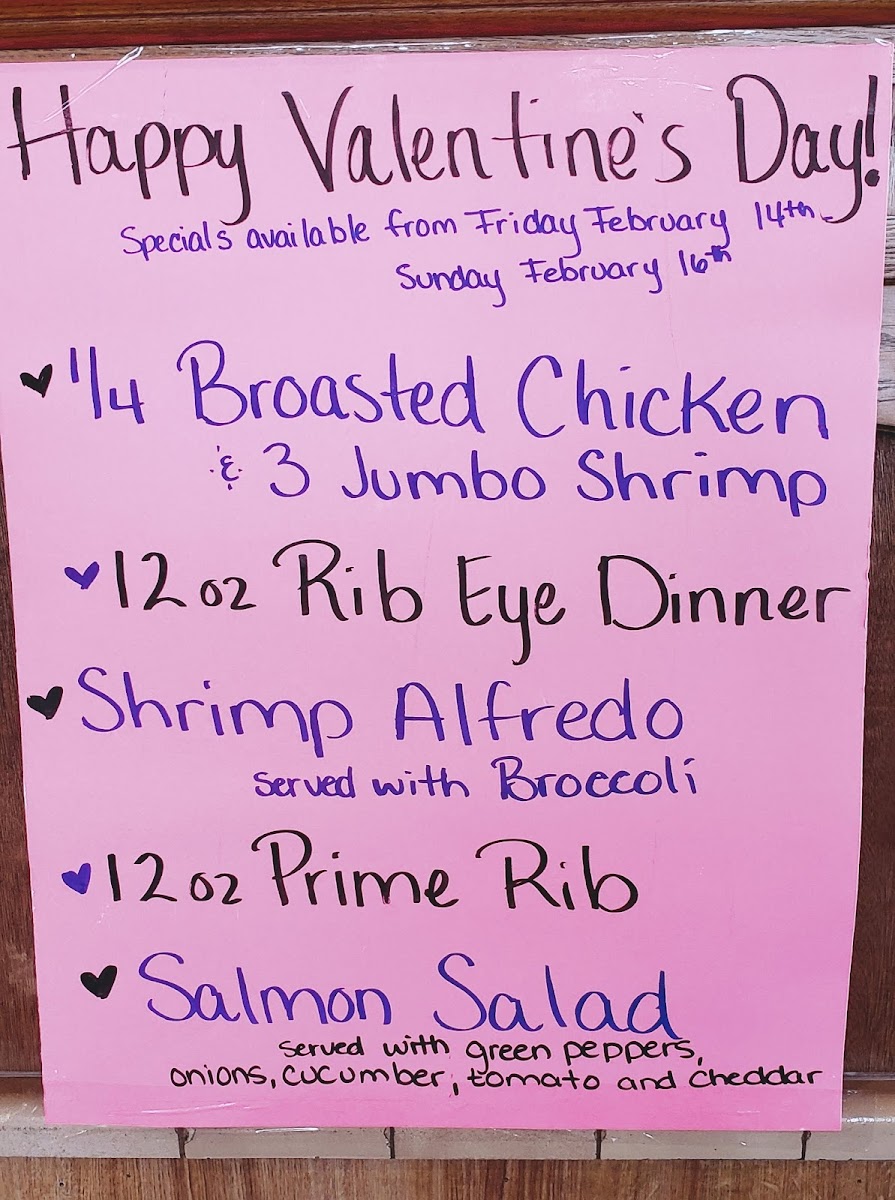 Happy Valentine's Day!
Specials available from Friday February 14th -
Sunday February 16th
1/4 Broasted Chicken
& 3 Jumbo Shrimp
12 oz Rib Eye Dinner
Shrimp Alfredo
served with Broccoli
12 oz Prime Rib
Salmon Salad
served with green peppers,
onions, cucumber, tomato and cheddar